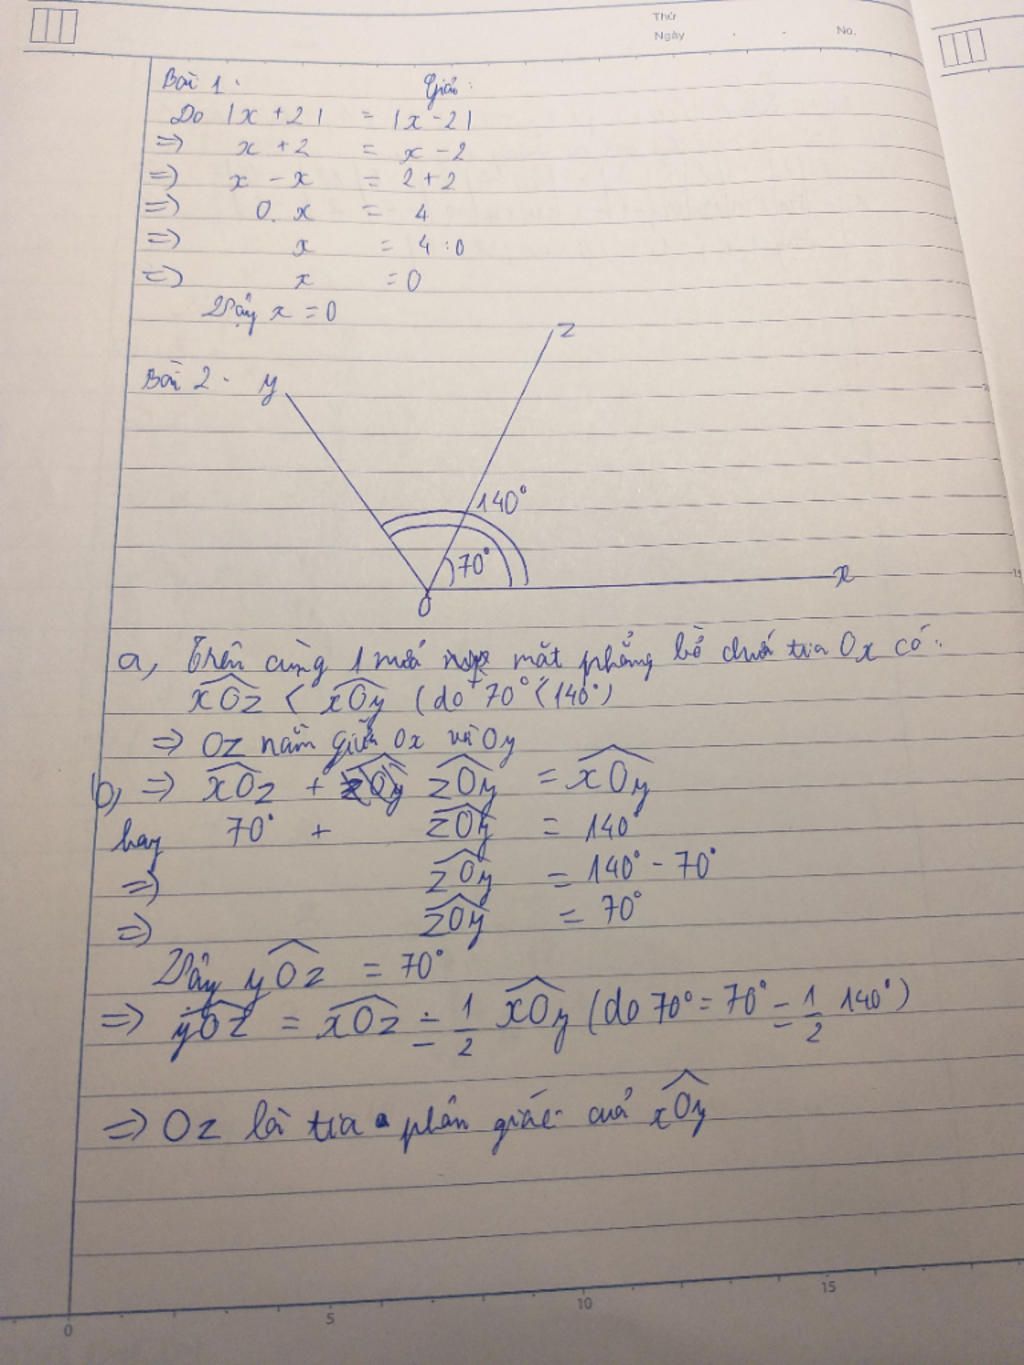 Thứ
Ngày . . No.
Bài 1. Giải:
Do |x + 2| = |x - 2|
=> x + 2 = x - 2
=> x - x = 2 + 2
=> 0. x = 4
=> x = 4 : 0
=> x = 0
Vậy x = 0
z
Bài 2. y
140°
70°
x
O
a, Trên cùng 1 mặt phẳng bờ chứa tia Ox có:
xOz < xOy (do 70° < 140°)
=> Oz nằm giữa Ox và Oy
b, => xOz + zOy = xOy
hay 70° + zOy = 140°
=> zOy = 140° - 70°
=> zOy = 70°
Vậy yOz = 70°
=> yOz = xOz = 1/2 xOy (do 70° = 70° = 1/2 140°)
=> Oz là tia phân giác của xOy
0 5 10 15